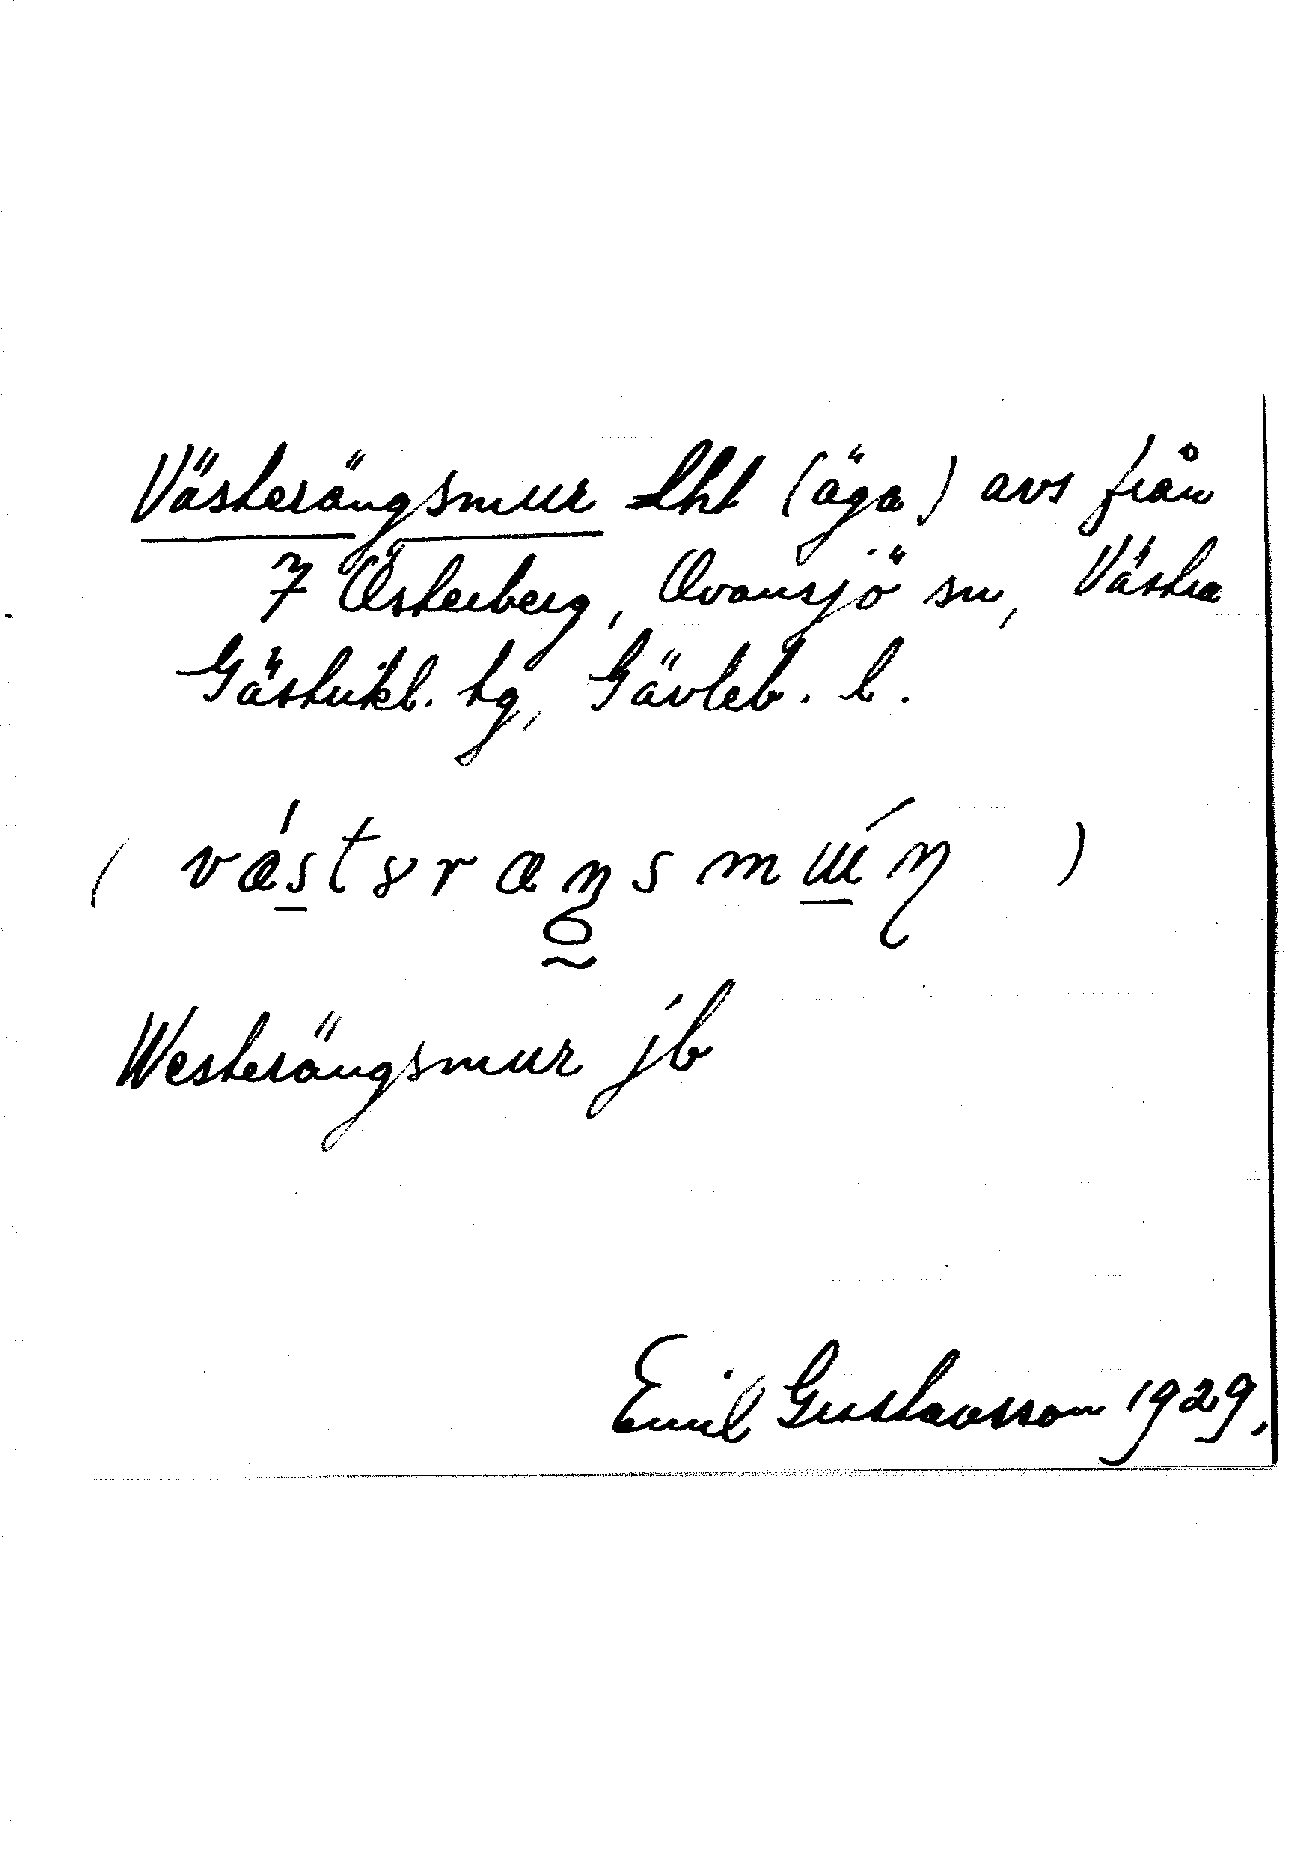 Västerängsmur lht (äga) avs från
7 Österberg, Ovansjö sn, Västra
Gästrikl. tg, Gävleb. l.
Westerängsmur jb
Emil Gustavsson 1929.